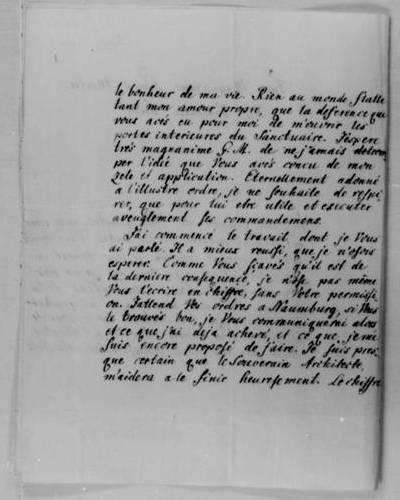 le bonheur de ma vie. Rien au monde flatte
tant mon amour propre, que la deference que
vous avés eu pour moi de m'ouvrir les
portes interieures du Sanctuaire. J'espere
trés magnanime G. M. de ne jamais detrom
per l'idée que Vous avés concu de mon
zele et application. Eternellement adonné
a l'illustre ordre, je ne souhaite de respi
rer, que pour lui etre utile et executer
aveuglement ses commandemens.
J'ai commencé le travail dont je Vous
ai parlé. Il a mieux reussi, que je n'osois
esperer. Comme Vous scavés qu'il est de
la derniere consequence, je n'ose pas même
Vous l'ecrire en chiffre, sans Votre permissi
on. J'attend Vos ordres a Naumburg, si Vous
le trouvés bon, je Vous communiquerai alors
et ce que j'ai deja achevé, et ce que je me
suis encore proposé de faire. Je suis pres
que certain que le Souverain Architecte,
m'aidera a le finir heuresement. Le chiffre